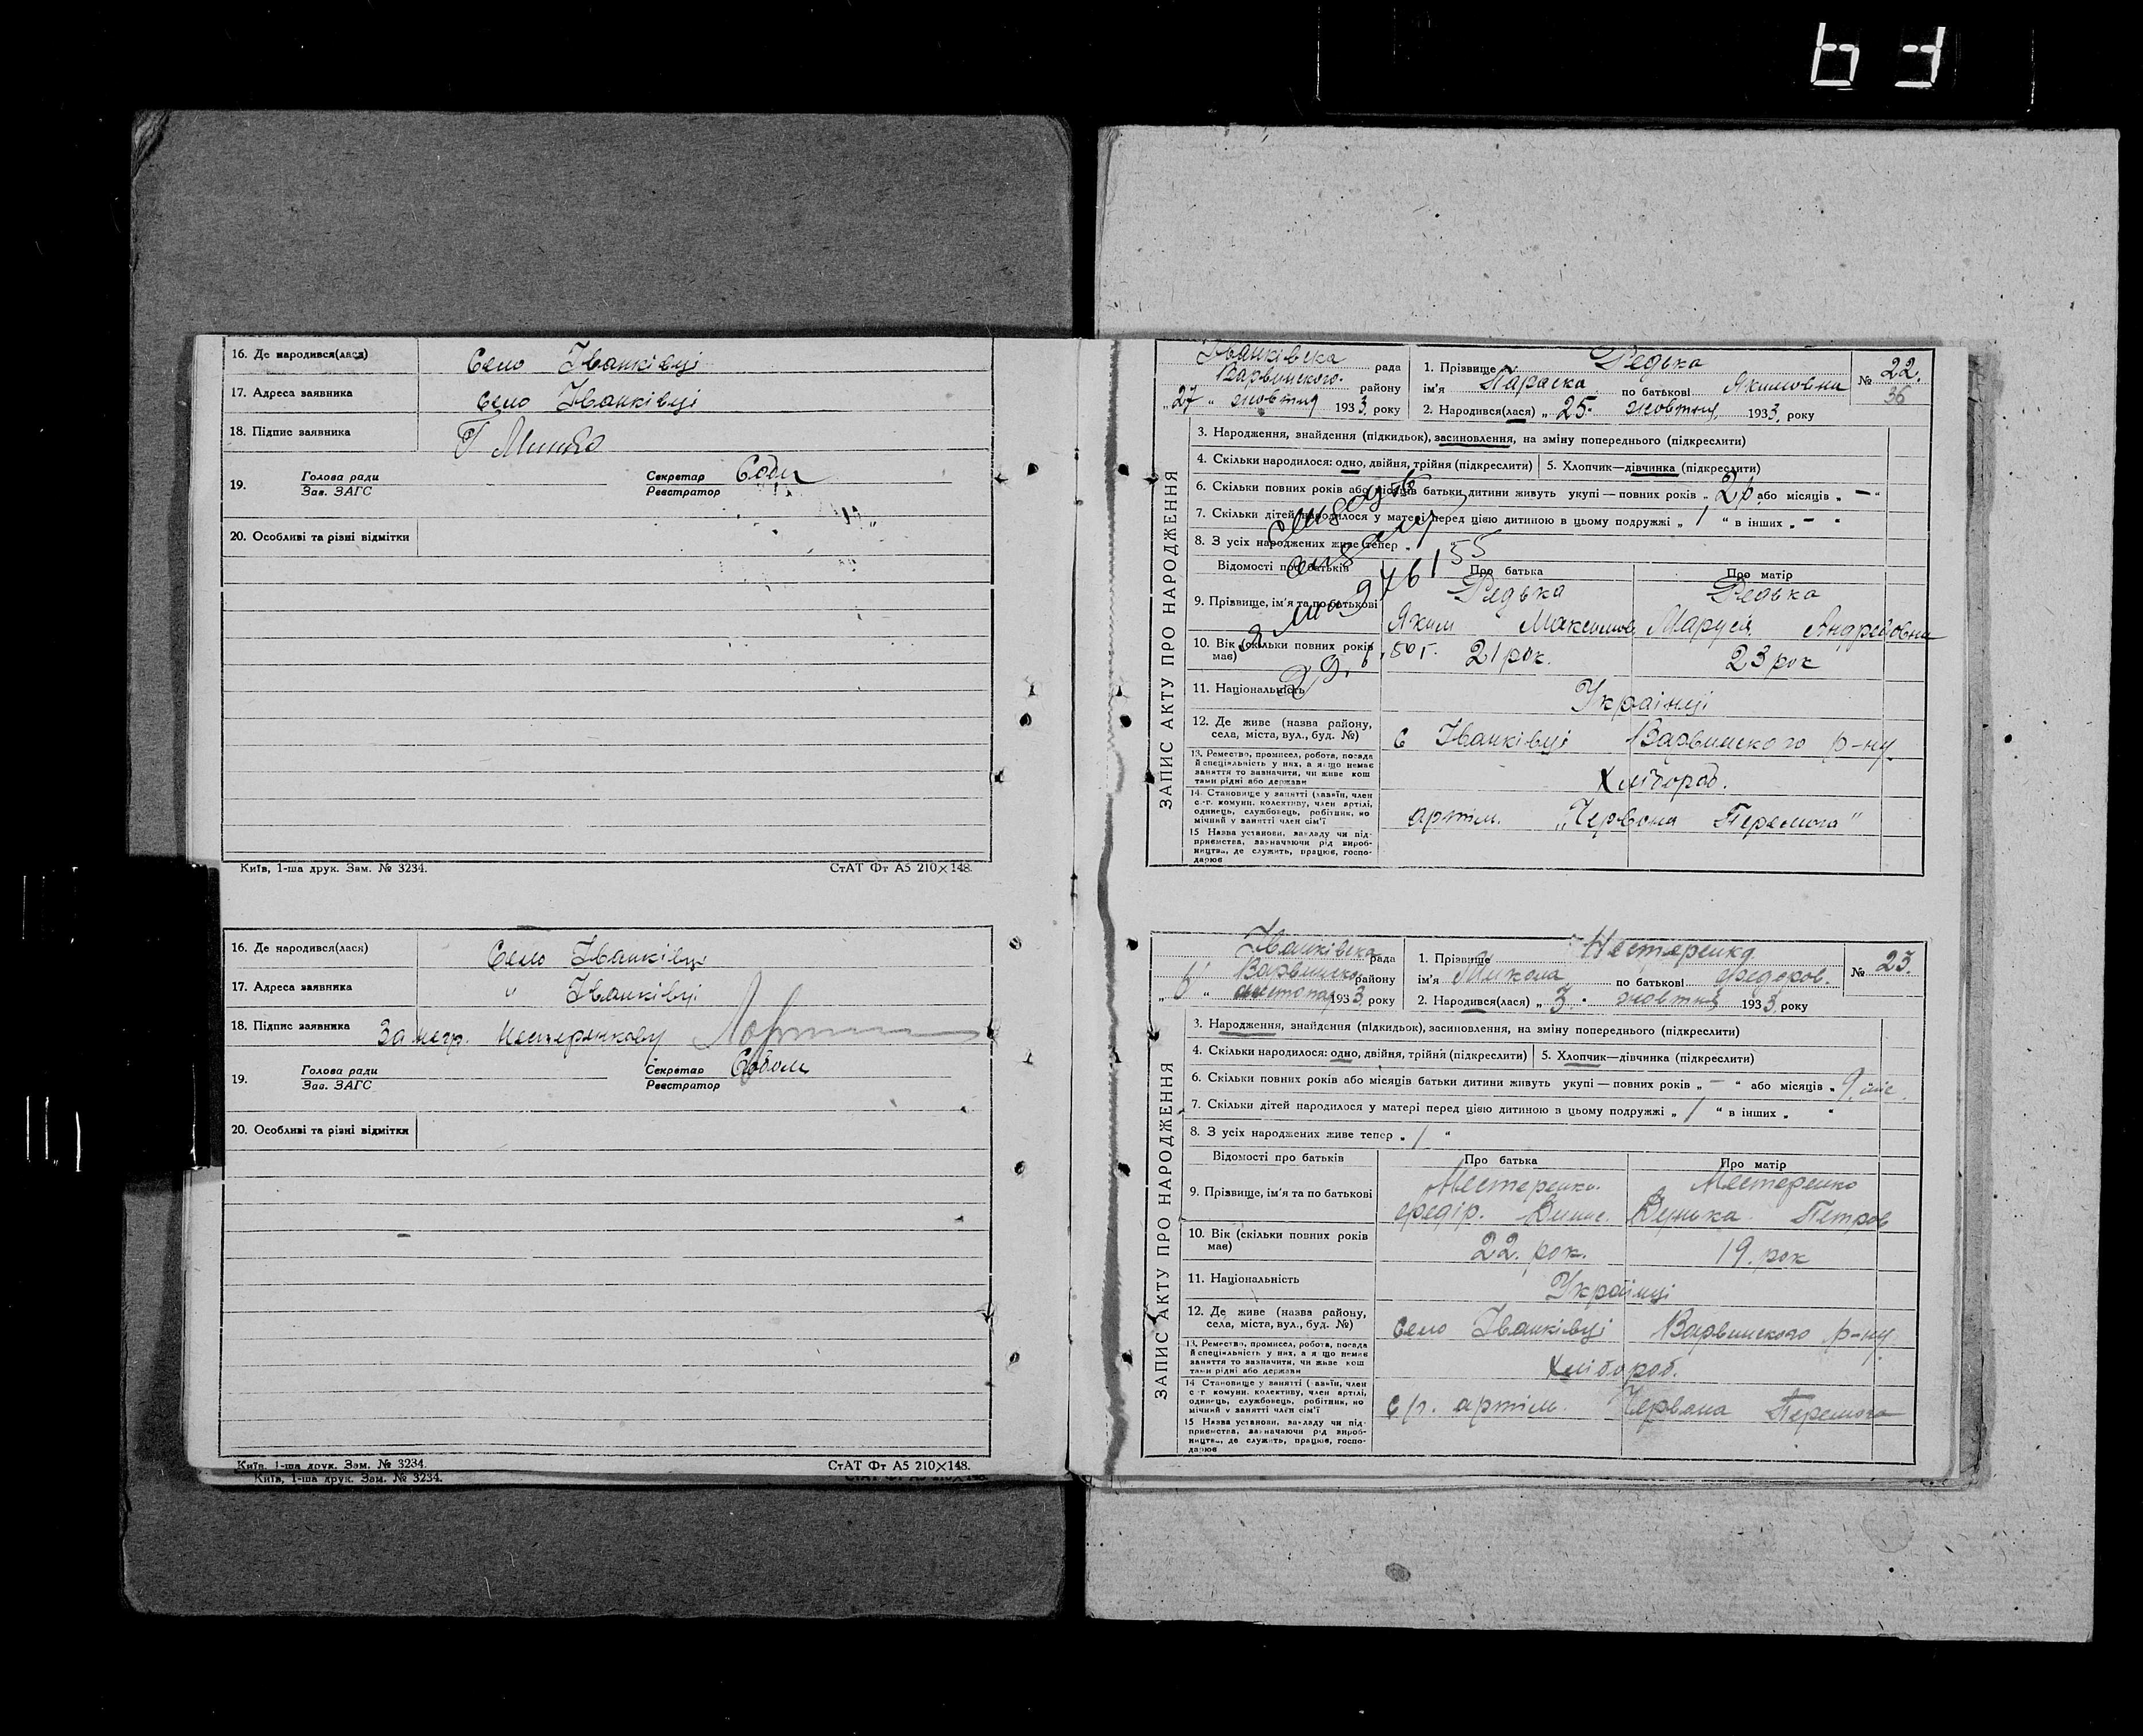 16. Де народився(лася) Село Іванківці
17. Адреса заявника село Іванківці
18. Підпис заявника
19. Голова ради Секретар
Зав. ЗАГС Реєстратор
20. Особливі та різні відмітки
Київ, 1-ша друк. Зам. № 3234. СтАТ Фт А5 210×148.
16. Де народився(лася) Село Іванківці
17. Адреса заявника " Іванківці
18. Підпис заявника За негр.
19. Голова ради Секретар
Зав. ЗАГС Реєстратор
20. Особливі та різні відмітки
Київ, 1-ша друк. Зам. № 3234. СтАТ Фт А5 210×148.
Київ, 1-ша друк. Зам. № 3234.
ЗАПИС АКТУ ПРО НАРОДЖЕННЯ
Іванківска рада
Варвинского району
„27" жовтня 1933 року
1. Прізвище Редька
ім'я Параска по батькові Якимовна
2. Народився(лася) „25" жовтня 1933 року
№ 22.
36
3. Народження, знайдення (підкидьок), засиновлення, на зміну попереднього (підкреслити)
4. Скільки народилося: одно, двійня, трійня (підкреслити) 5. Хлопчик—дівчинка (підкреслити)
6. Скільки повних років або місяців батьки дитини живуть укупі — повних років „ або місяців „ – "
7. Скільки дітей народилося у матері перед цією дитиною в цьому подружжі „ 1 " в інших „ – "
8. З усіх народжених живе тепер „
Відомості про батьків Про батька Про матір
9. Прізвище, ім'я та по батькові Редька Редька
Яким Максимов Маруся Андреєовна
10. Вік (скільки повних років має) 21 рок. 23 рок
11. Національність Українці
12. Де живе (назва району, села, міста, вул., буд. №) с Іванківці Варвинского р-ну
13. Ремество, промисел, робота, посада й спеціяльність у них, а якщо немає заняття то зазначити, чи живе коштами рідні або держави Хлібороб.
14. Становище у занятті (хазяїн, член с.-г. комуни, колективу, член артілі, одинець, службовець, робітник, помічний у занятті член сім'ї артіл. „Червона Перемога"
15 Назва установи, закладу чи підприємства, зазначаючи рід виробництва, де служить, працює, господарює
ЗАПИС АКТУ ПРО НАРОДЖЕННЯ
Іванківска рада
Варвинско району
листопад 1933 року
1. Прізвище Нестеренко
ім'я Микола по батькові Федоров.
2. Народився(лася) „3" жовтня 1933 року
№ 23.
3. Народження, знайдення (підкидьок), засиновлення, на зміну попереднього (підкреслити)
4. Скільки народилося: одно, двійня, трійня (підкреслити) 5. Хлопчик—дівчинка (підкреслити)
6. Скільки повних років або місяців батьки дитини живуть укупі — повних років „ – " або місяців „ 9 міс.
7. Скільки дітей народилося у матері перед цією дитиною в цьому подружжі „ 1 " в інших „ "
8. З усіх народжених живе тепер „ 1 "
Відомості про батьків Про батька Про матір
9. Прізвище, ім'я та по батькові Нестеренко. Нестеренко
Федір. Дунька Петров
10. Вік (скільки повних років має) 22. рок. 19. рок
11. Національність Українці
12. Де живе (назва району, села, міста, вул., буд. №) село Іванківці Варвинского р-ну
13. Ремество, промисел, робота, посада й спеціяльність у них, а якщо немає заняття то зазначити, чи живе коштами рідні або держави Хлібороб.
14 Становище у занятті (хазяїн, член с.-г. комуни, колективу, член артілі, одинець, службовець, робітник, помічний у занятті член сім'ї с/г. артіл. Червана Перемога
15 Назва установи, закладу чи підприємства, зазначаючи рід виробництва, де служить, працює, господарює